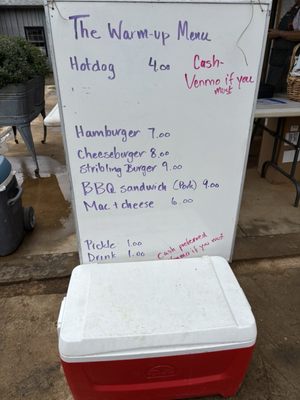 The Warm-up Menu
Hotdog 4.00
Cash-
Venmo if you
must
Hamburger 7.00
Cheeseburger 8.00
Stribling Burger 9.00
BBQ Sandwich (Pork) 9.00
Mac + cheese 6.00
Pickle 1.00
Drink 1.00
Cash preferred
Venmo if you must